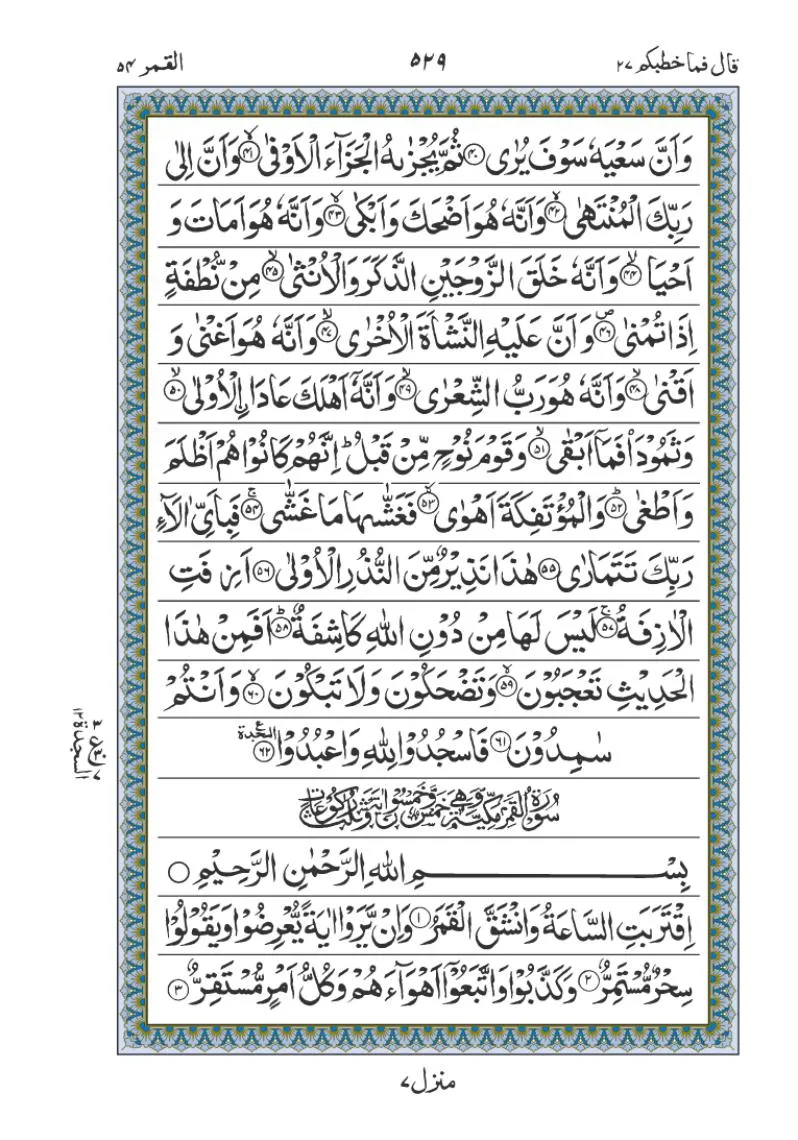 قال فما خطبكم ٢٧ ٥٢٩ القمر ٥٤
وَاَنَّ سَعْيَهٗ سَوْفَ يُرٰى ۝٤٠ ثُمَّ يُجْزٰىهُ الْجَزَآءَ الْاَوْفٰى ۝٤١ۙ وَاَنَّ اِلٰى
رَبِّكَ الْمُنْتَهٰى ۝٤٢ۙ وَاَنَّهٗ هُوَ اَضْحَكَ وَاَبْكٰى ۝٤٣ۙ وَاَنَّهٗ هُوَ اَمَاتَ وَ
اَحْيَا ۝٤٤ۙ وَاَنَّهٗ خَلَقَ الزَّوْجَيْنِ الذَّكَرَ وَالْاُنْثٰى ۝٤٥ۙ مِنْ نُّطْفَةٍ
اِذَا تُمْنٰى ۝٤٦ص وَاَنَّ عَلَيْهِ النَّشْاَةَ الْاُخْرٰى ۝٤٧ۙ وَاَنَّهٗ هُوَ اَغْنٰى وَ
اَقْنٰى ۝٤٨ۙ وَاَنَّهٗ هُوَ رَبُّ الشِّعْرٰى ۝٤٩ۙ وَاَنَّهٗۤ اَهْلَكَ عَادَا ِۨالْاُوْلٰى ۝٥٠ۙ
وَثَمُوْدَاۡ فَمَاۤ اَبْقٰى ۝٥١ۙ وَقَوْمَ نُوْحٍ مِّنْ قَبْلُ ؕ اِنَّهُمْ كَانُوْا هُمْ اَظْلَمَ
وَاَطْغٰى ۝٥٢ؕ وَالْمُؤْتَفِكَةَ اَهْوٰى ۝٥٣ۙ فَغَشّٰىهَا مَا غَشّٰى ۝٥٤ۚ فَبِاَىِّ اٰلَآءِ
رَبِّكَ تَتَمَارٰى ۝٥٥ هٰذَا نَذِيْرٌ مِّنَ النُّذُرِ الْاُوْلٰى ۝٥٦ اَزِفَتِ
الْاٰزِفَةُ ۝٥٧ۚ لَيْسَ لَهَا مِنْ دُوْنِ اللّٰهِ كَاشِفَةٌ ۝٥٨ؕ اَفَمِنْ هٰذَا
الْحَدِيْثِ تَعْجَبُوْنَ ۝٥٩ۙ وَتَضْحَكُوْنَ وَلَا تَبْكُوْنَ ۝٦٠ۙ وَاَنْتُمْ
سٰمِدُوْنَ ۝٦١ فَاسْجُدُوْا لِلّٰهِ وَاعْبُدُوْا ۝٦٢ السجدة ع
السجدة ١٢
سُوْرَةُ الْقَمَرِ مَكِّيَّةٌ وَّهِىَ خَمْسٌ وَّخَمْسُوْنَ اٰيَةً وَّثَلٰثُ رُكُوْعَاتٍ
بِسْمِ اللّٰهِ الرَّحْمٰنِ الرَّحِيْمِ ۝
اِقْتَرَبَتِ السَّاعَةُ وَانْشَقَّ الْقَمَرُ ۝١ وَاِنْ يَّرَوْا اٰيَةً يُّعْرِضُوْا وَيَقُوْلُوْا
سِحْرٌ مُّسْتَمِرٌّ ۝٢ وَكَذَّبُوْا وَاتَّبَعُوْۤا اَهْوَآءَهُمْ وَكُلُّ اَمْرٍ مُّسْتَقِرٌّ ۝٣
منزل ٧